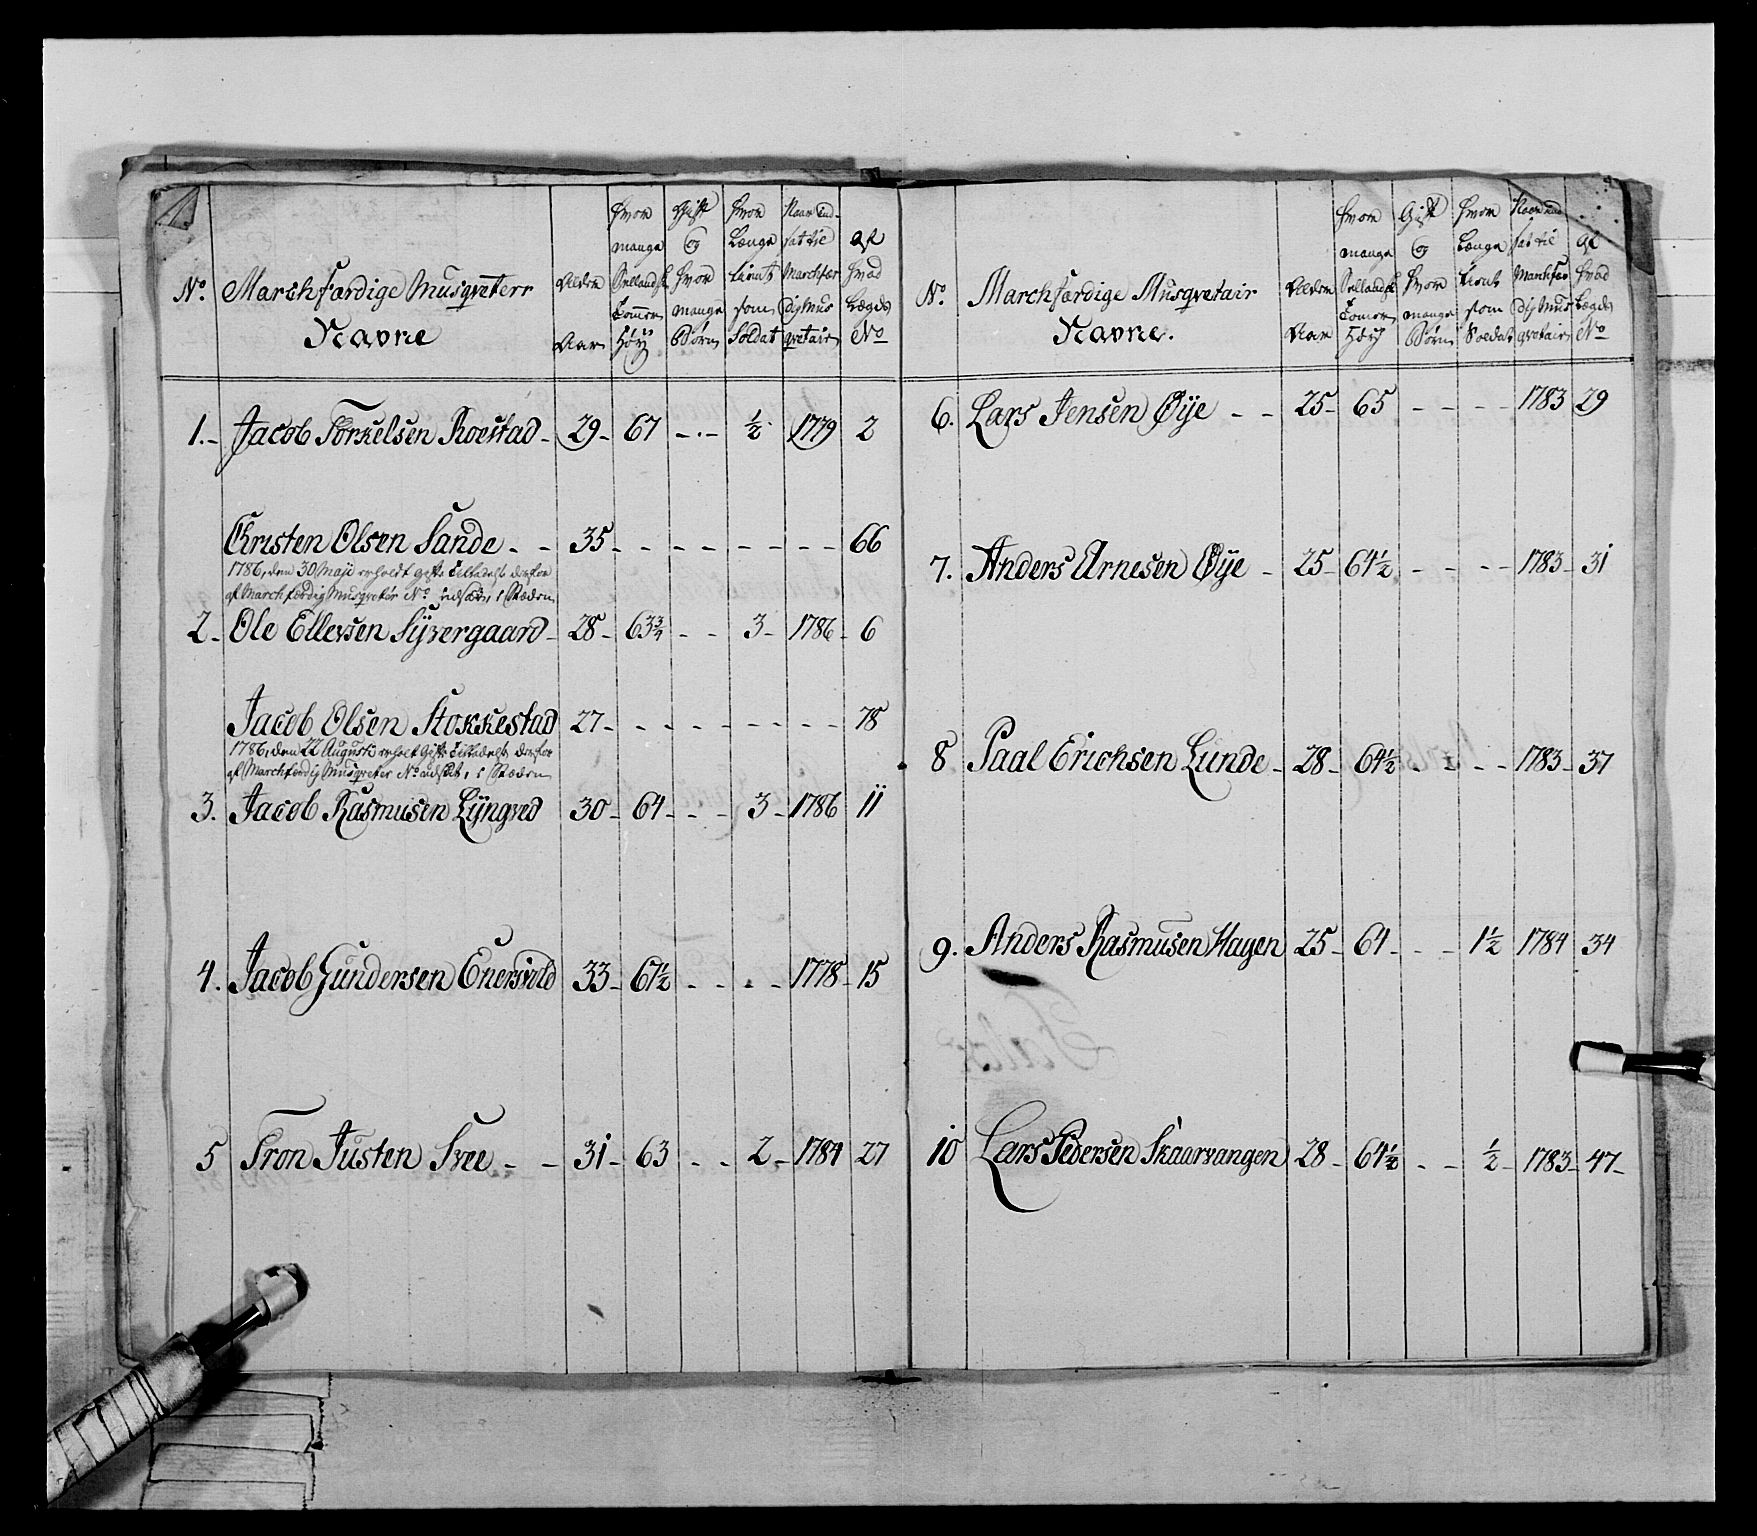 No. Marchfærdige Musqveterr Navne | Alder Aar | Hvor mange Sellandsk Tommer Höÿ | Gift og Hvor mange Börn | Hvor Længe tient som Soldat | Naar Ind- sat til Marchfær dig Mus qvetair | Af Hvad Lægds No
1. Jacob Torkelsen Roestad 29 67 ½ 1779 2
Christen Olsen Sande 35 66
1786, den 30 Maji erholdt gifte Tilladelse derfor
af Marchfærdig Musqvetér No. udsædt, i Stæden
2 Ole Ellevsen Syvergaard 28 63¾ 3 1786 6
Jacob Olsen Stokkestad 27 78
1786, den 22 Augusti erholt Gifte Tilladelse, derfor
af Marchferdig Musqveter No. udsædt, i Stæden
3. Jacob Rasmusen Lÿngved 30 64 3 1786 11
4. Jacob Gundersen Enersvold 33 67½ 1778 15
5 Tron Justen Tvee 31 63 2 1784 27
No. Marchfærdige Musqvetair Navne. | Alder Aar | Hvor mange Sellandsk Tommer Höÿ | Gift og Hvor mange Börn | Hvor Længe tient som Soldat | Naar ind sat til Marchfær dig Mus qvetair | Af Hvad Lægds No
6. Lars Jensen Øÿe 25 65 1783 29
7. Anders Arnesen Øÿe 25 64½ 1783 31
8 Paal Erichsen Lunde 28 64½ 1783 37
9. Anders Rasmusen Hagen 25 64 1½ 1784 34
10 Lars Pedersen Skaarvangen 28 64½ ½ 1783 47